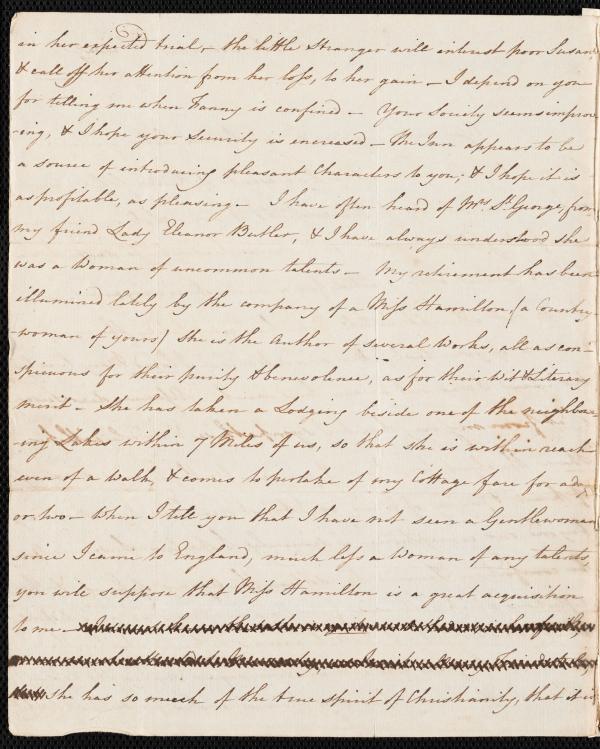 in her expected trial, — the little Stranger will interest poor Susan,
& call off her attention from her loss, to her gain — I depend on you
for telling me when Fanny is confined — Your Society seems improv
-ing, & I hope your Security is encreased — The Inn appears to be
a source of introducing pleasant Characters to you; & I hope it is
as profitable, as pleasing — I have often heard of Mrs. St. George, from
my friend Lady Eleanor Butler, & I have always understood she
was a Woman of uncommon talents — My retirement has been
illumined lately by the company of a Miss Hamilton, (a Country
-woman of yours) she is the Author of several Works, all as con-
spicuous for their purity & benevolence, as for their Wit & Literary
merit — She has taken a Lodging beside one of the neighbou
-ing Lakes within 7 Miles of us, so that she is within reach
even of a Walk, & comes to partake of my Cottage fare for a day
or two — When I tell you that I have not seen a Gentlewoman
since I came to England, much less a Woman of any talents,
you will suppose that Miss Hamilton is a great acquisition
to me —
she has so much of the true spirit of Christianity, that it is